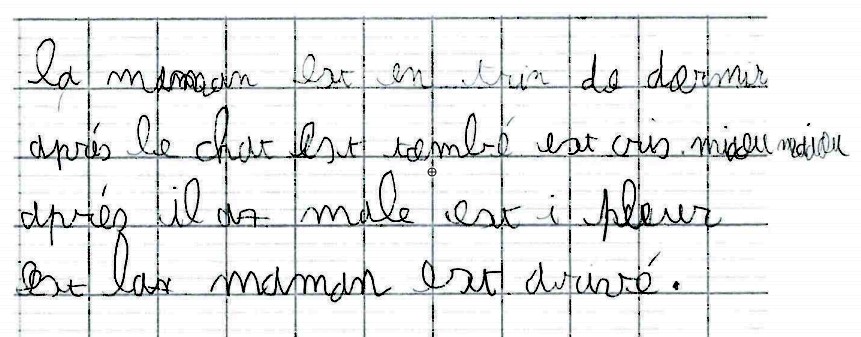 la maman est en trin de dormir
après le chat est tombé est cris miaou maiou
après il a male est i pleur
est la maman est arrivé.